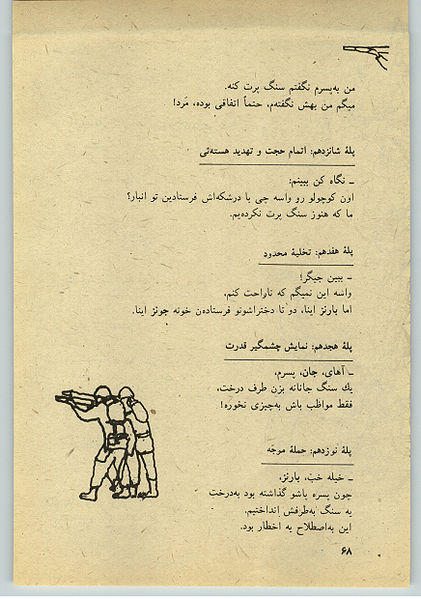 من به‌پسرم نگفتم سنگ پرت کنه.
میگم من بهش نگفته‌م، حتماً اتفاقی بوده، مَرد!
پلهٔ شانزدهم: اتمام حجت و تهدید هسته‌ئی
ــ نگاه کن ببینم:
اون کوچولو رو واسه چی با درشکه‌اش فرستادین تو انبار؟
ما که هنوز سنگ پرت نکرده‌یم.
پلهٔ هفدهم: تخلیهٔ محدود
ــ ببین جیگر!
واسه این نمیگم که ناراحت کنم،
اما بارنز اینا، دو تا دختراشونو فرستاده‌ن خونه جونز اینا.
پلهٔ هجدهم: نمایش چشمگیر قدرت
ــ آهای، جان، پسرم،
یك سنگ جانانه بزن طرف درخت،
فقط مواظب باش به‌چیزی نخوره!
پلهٔ نوزدهم: حملهٔ موجّه
ــ خیله خب، بارنز،
چون پسره پاشو گذاشته بود به‌درخت
یه سنگ به‌طرفش انداختیم.
این به‌اصطلاح یه اخطار بود.
۶۸